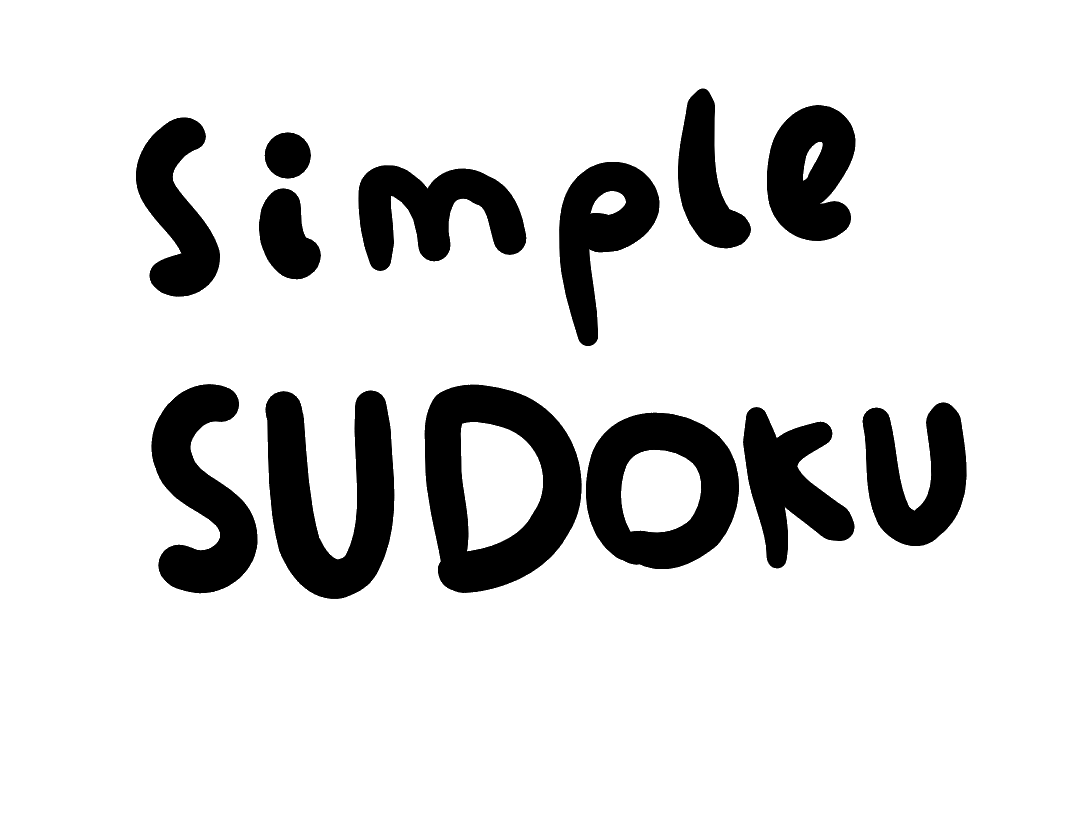 Simple
SUDOKU